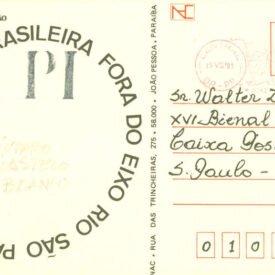 BRASILEIRA FORA DO EIXO RIO SÃO PA
PI
NAC • RUA DAS TRINCHEIRAS, 275 • 58.000 • JOÃO PESSOA, PARAÍBA
Sr. Walter Z
XVI Bienal
Caixa Pos
S. Paulo -
0 1 0